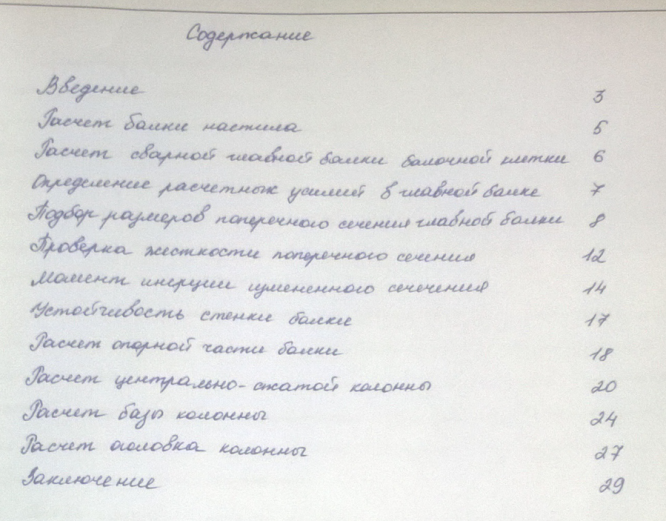 Содержание
Введение 3
Расчет балки настила 5
Расчет сварной главной балки балочной клетки 6
Определение расчетных усилий в главной балке 7
Подбор размеров поперечного сечения главной балки 8
Проверка жесткости поперечного сечения 12
Момент инерции измененного сечечения 14
Устойчивость стенки балки 17
Расчет опорной части балки 18
Расчет центрально-сжатой колонны 20
Расчет базы колонны 24
Расчет оголовка колонны 27
Заключение 29